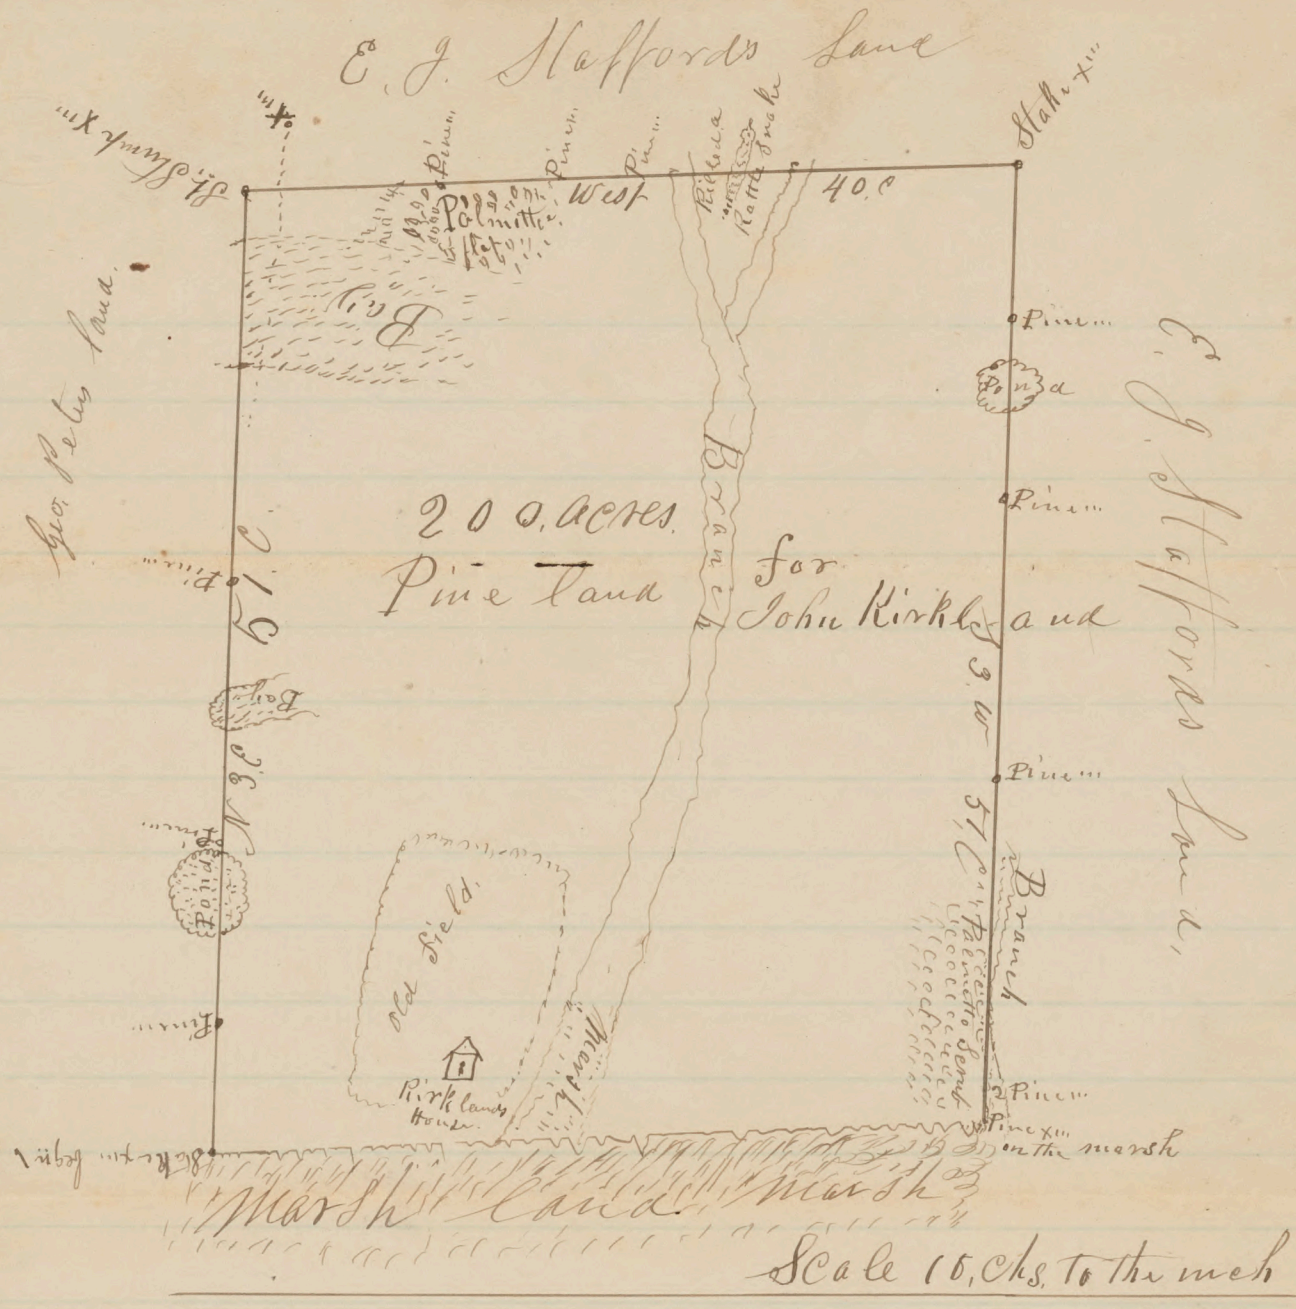 E. J. Staffords Land
St. Stump x'''
x'''
Pine'''
Pine'''
Pine'''
Killed a
Rattle Snake
Stake x'''
West
40.c
Palmitto
Bay
Geo. Peters land.
Pine'''
Pond
E. J. Staffords Land,
Pine'''
200. acres.
Pine land
for
John Kirkland
Branch
Pine'''
Bay
N 3 E
S 3. W
51 C
Pine'''
Pine'''
Pond
Branch
Palmitto Scrub
Old Field
Pine'''
Kirklands
House.
Marsh
Pine'''
Pine x'''
on the marsh
Stake x''' begin
Marsh land. Marsh
Scale 10, chs. to the inch